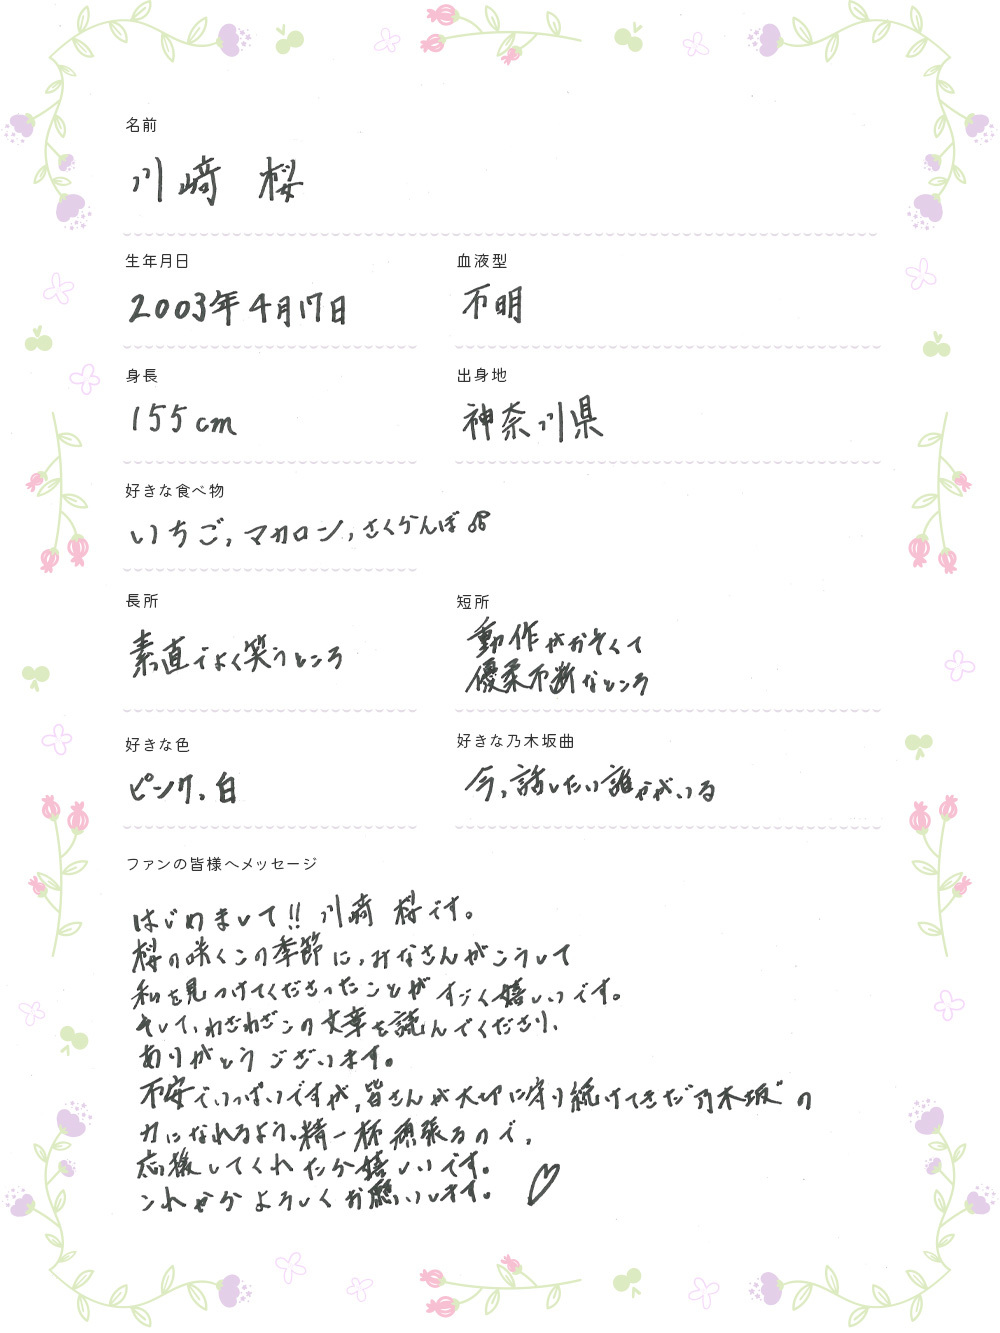 名前
川﨑 桜
生年月日
2003年4月17日
血液型
不明
身長
155cm
出身地
神奈川県
好きな食べ物
いちご, マカロン, さくらんぼ
長所
素直でよく笑うところ
短所
動作がおそくて
優柔不断なところ
好きな色
ピンク、白
好きな乃木坂曲
今、話したい誰かがいる
ファンの皆様へメッセージ
はじめまして!! 川﨑 桜です。
桜の咲くこの季節に、みなさんがこうして
私を見つけてくださったことがすごく嬉しいです。
そして、わざわざこの文章を読んでくださり、
ありがとうございます。
不安でいっぱいですが、皆さんが大切に守り続けてきた"乃木坂"の
力になれるよう、精一杯頑張るので、
応援してくれたら嬉しいです。
これからよろしくお願いします。♡